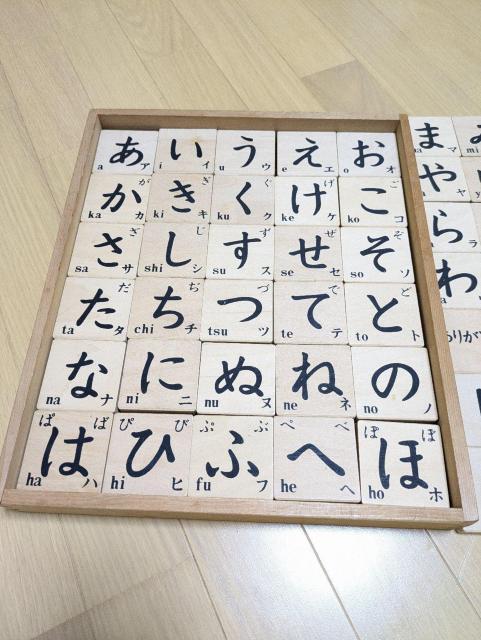 あ a ア い i イ う u ウ え e エ お o オ
か が ka カ き ぎ ki キ く ぐ ku ク け げ ke ケ こ ご ko コ
さ ざ sa サ し じ shi シ す ず su ス せ ぜ se セ そ ぞ so ソ
た だ ta タ ち ぢ chi チ つ づ tsu ツ て で te テ と ど to ト
な na ナ に ni ニ ぬ nu ヌ ね ne ネ の no ノ
は ぱ ば ha ハ ひ ぴ び hi ヒ ふ ぷ ぶ fu フ へ ぺ べ he ヘ ほ ぽ ぼ ho ホ
ま マ mi
や ヤ
ら ラ
わ
りが